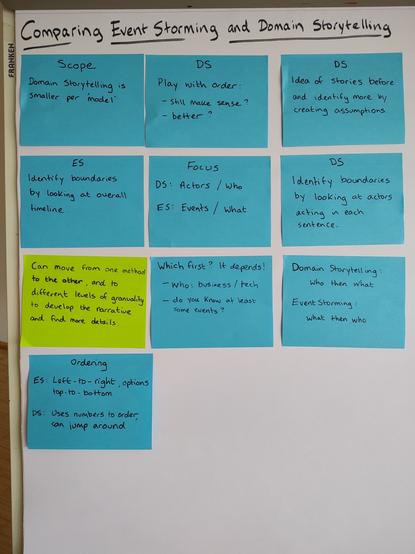 Comparing Event Storming and Domain Storytelling
FRANKEN
Scope
Domain Storytelling is
smaller per 'model'
DS
Play with order:
- still make sense?
- better?
DS
Idea of stories before
and identify more by
creating assumptions
ES
Identify boundaries
by looking at overall
timeline.
Focus
DS: Actors / Who
ES: Events / What
DS
Identify boundaries
by looking at actors
acting in each
sentence.
Can move from one method
to the other, and to
different levels of granuality
to develop the narrative
and find more details.
Which first? It depends!
- Who: business / tech
- do you know at least
some events?
Domain Storytelling:
Who then what
Event Storming:
What then who
Ordering
ES: Left-to-right, options
top-to-bottom
DS: Uses numbers to order,
can jump around